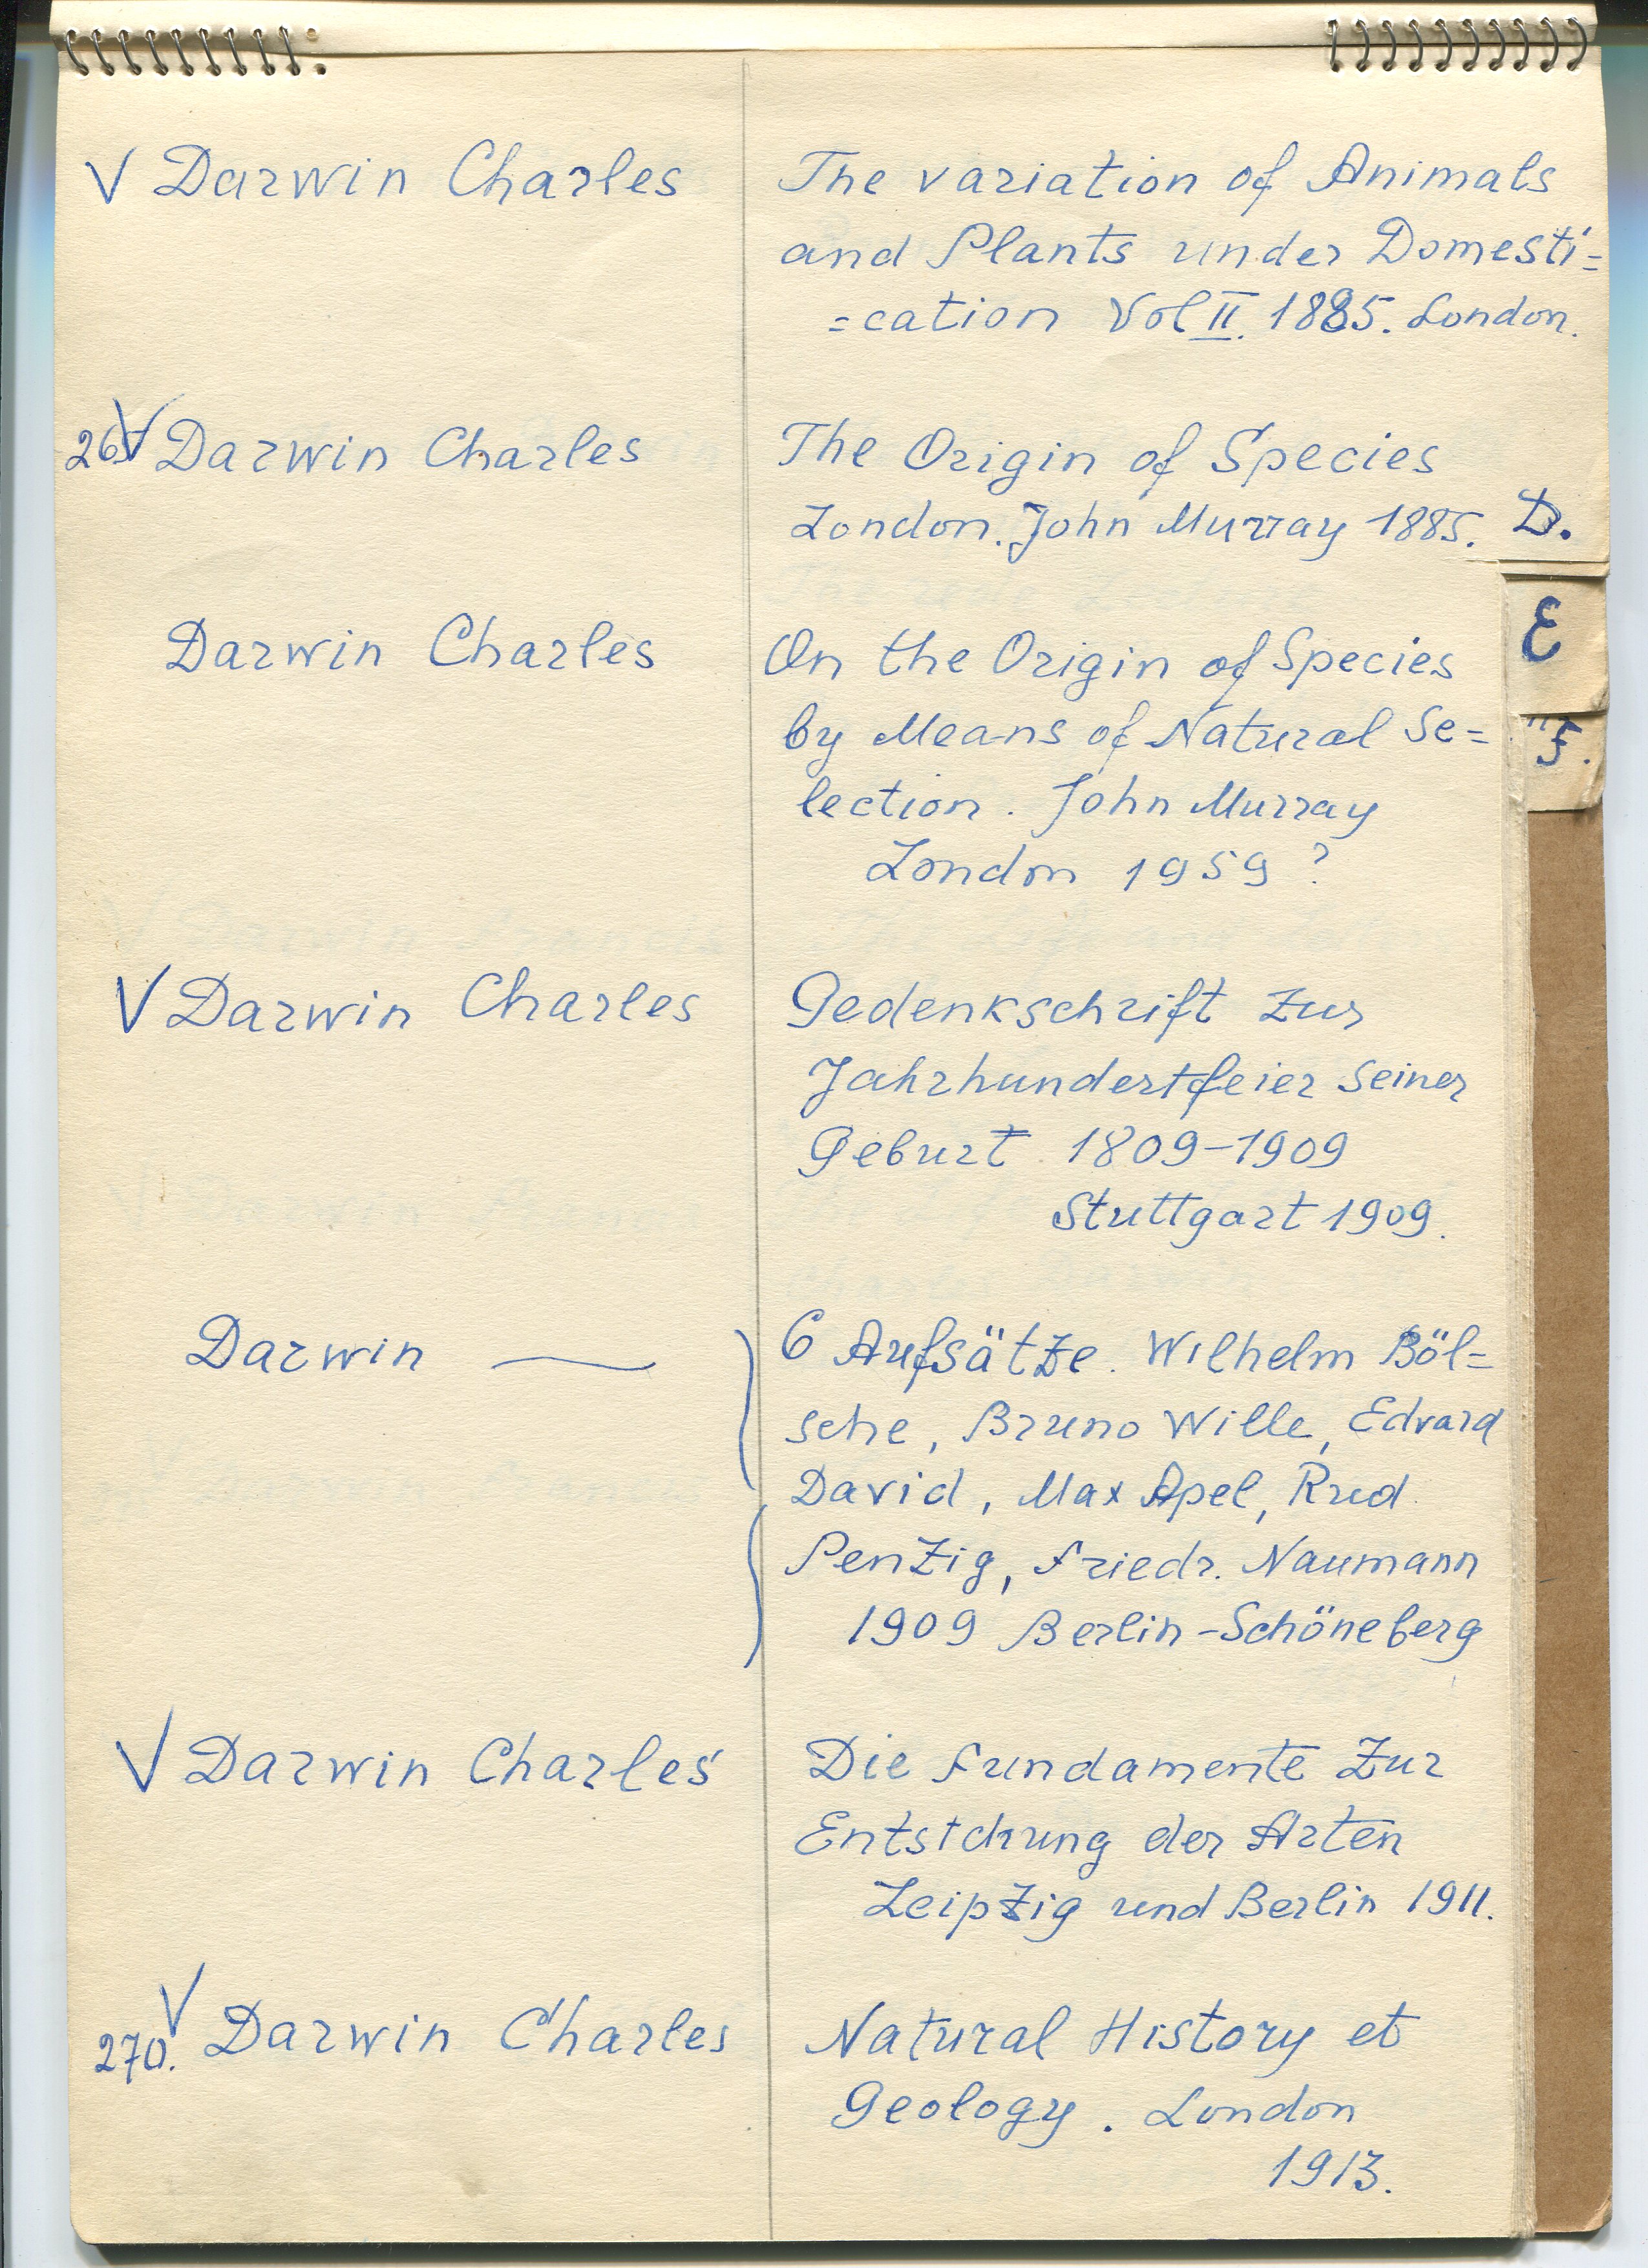 V Darwin Charles
The variation of Animals
and Plants under Domesti=
=cation Vol II. 1885. London.
265 V Darwin Charles
The Origin of Species
London. John Murray 1885.
D.
Darwin Charles
On the Origin of Species
by Means of Natural Se=
lection. John Murray
London 1959 ?
E
F.
V Darwin Charles
Gedenkschrift zur
Jahrhundertfeier seiner
Geburt 1809-1909
Stuttgart 1909.
Darwin —
6 Aufsätze. Wilhelm Böl=
sche, Bruno Wille, Edvard
David, Max Apel, Rud.
Penzig, Friedr. Naumann
1909 Berlin-Schöneberg
V Darwin Charles
Die Fundamente zur
Entstehung der Arten
Leipzig und Berlin 1911.
270. V Darwin Charles
Natural History et
Geology. London
1913.